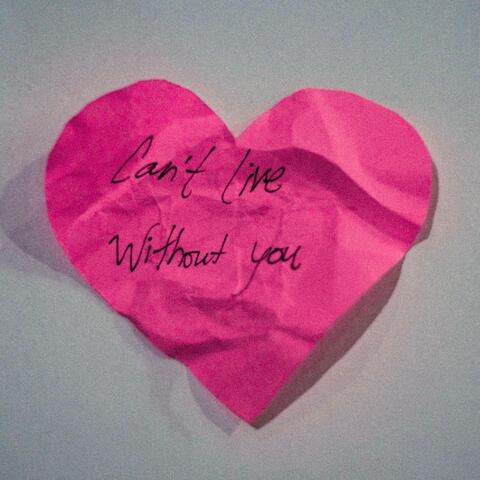 Can't live
Without you